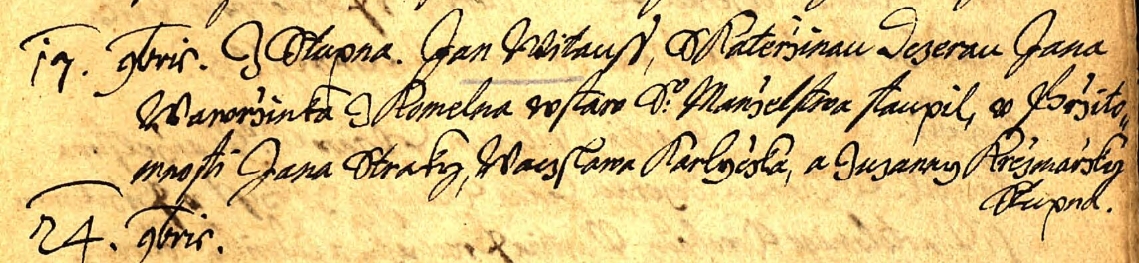 17. 9bris. Z Stupna. Jan Witauss, S Kateržinau Dczerau Jana
Wawržinka Z Komelna w staw S. Manželstwa staupil, w Pržito„
mnosti Jana Straky, Waczslawa Karlyčka, a Zuzanny Krčmářky
Stupna.
24. 9bris.